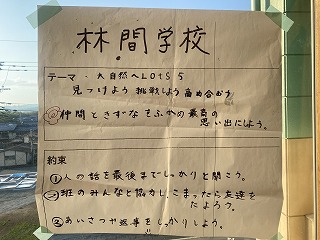 林間学校
テーマ・大自然へLOtS 5
見つけよう 挑戦しよう 高め合おう
仲間ときずなをふかめ最高の
思い出にしよう。
約束
①人の話を最後までしっかりと聞こう。
班のみんなと協力し、こまったら友達を
たよろう。
あいさつや返事をしっかりしよう。